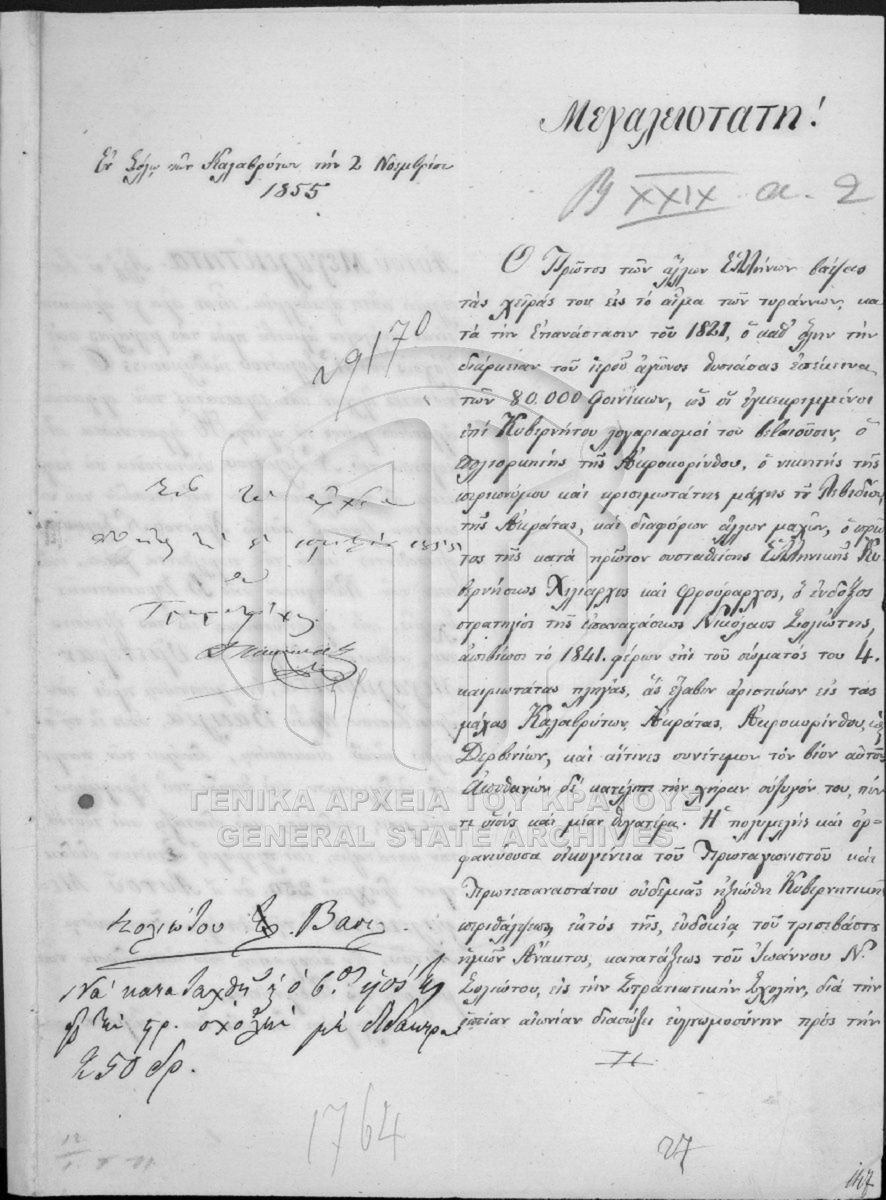 Μεγαλειοτατη!
Ἐν Σόλῳ τῶν Καλαβρύτων τὴν 2 Νοεμβρίου
1855
XXIX a. 2
Ὁ Πρῶτος τῶν ἄλλων Ἑλλήνων βάψας
τὰς χεῖράς του εἰς τὸ αἷμα τῶν τυράννων, κα-
τὰ τὴν Ἐπανάστασιν τοῦ 1821, ὁ καθ' ὅλην τὴν
διάρκειαν τοῦ ἱεροῦ ἀγῶνος θυσιάσας ἐπέκεινα
τῶν 80.000 φοινίκων, ὡς οἱ ἐγκεκριμμένοι
ἐπὶ Κυβερνήτου λογαριασμοί του βεβαιοῦσιν, ὁ
πολιορκητὴς τῆς Ἀκροκορίνθου, ὁ νικητὴς τῆς
περιωνύμου καὶ κρισιμωτάτης μάχης τοῦ Λεβιδίου,
τῆς Ἀκράτας, καὶ διαφόρων ἄλλων μαχῶν, ὁ πρῶ-
τος τῆς κατὰ πρῶτον συσταθείσης Ἑλληνικῆς Κυ-
βερνήσεως Χιλίαρχος καὶ Φρούραρχος, ὁ ἔνδοξος
στρατηγὸς τῆς ἐπαναστάσεως Νικόλαος Σολιώτης,
ἀπεβίωσε τὸ 1841. φέρων ἐπὶ τοῦ σώματός του 4.
καιριωτάτας πληγάς, ἃς ἔλαβεν ἀριστεύων εἰς τὰς
μάχας Καλαβρύτων, Ἀκράτας, Ἀκροκορίνθου, καὶ
Δερβενίων, καὶ αἵτινες συνέτεμον τὸν βίον αὐτοῦ.
Ἀποθανὼν δὲ κατέλιπε τὴν χήραν σύζυγόν του, πέν-
τε υἱοὺς καὶ μίαν θυγατέρα. Ἡ πολυμελὴς καὶ ὀρ-
φανεύουσα οἰκογένεια τοῦ Πρωταγωνιστοῦ καὶ
Πρωτεπαναστάτου οὐδεμιᾶς ἠξιώθη Κυβερνητικῆς
περιθάλψεως, ἐκτὸς τῆς, εὐδοκίᾳ τοῦ τρισεβάστου
ἡμῶν Ἄνακτος, κατατάξεως τοῦ Ἰωάννου Ν.
Σολιώτου, εἰς τὴν Στρατιωτικὴν Σχολήν, διὰ τὴν
ὁποίαν αἰωνίαν διασώζει εὐγνωμοσύνην πρὸς τὴν
29170
1855
Σολιώτου Βασ.
Νὰ καταταχθῇ ὁ 6.ος υἱός
σχολὴ μὲ δίδακτρα
250 δρ.
1764
27
147
ΓΕΝΙΚΑ ΑΡΧΕΙΑ ΤΟΥ ΚΡΑΤΟΥΣ
GENERAL STATE ARCHIVES